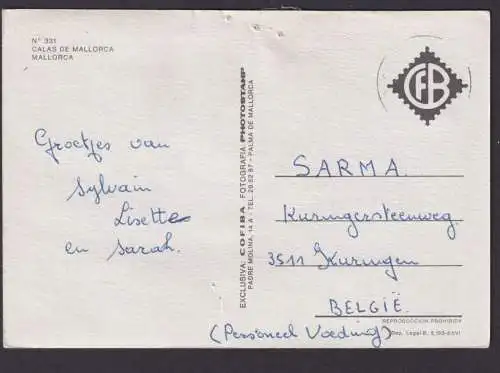 Nº 331
CALAS DE MALLORCA
MALLORCA
Groetjes van
Sylvain
Lisette
en Sarah.
EXCLUSIVA: COFIBA FOTOGRAFIA PHOTOSTAHF
PADRE MOLINA, 14 A - TEL. 26 52 87 - PALMA DE MALLORCA
CFB
SARMA.
Kuringersteenweg.
3511 Kuringen
BELGIË.
REPRODUCCION PROHIBIDA
Dep. Legal B.
(Personeel Voeding)